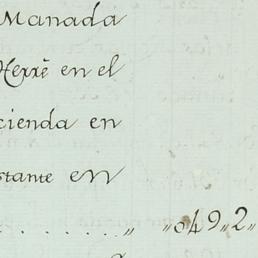 Manada
Herrẽ en el
cienda en
stante en
. . . . . . . „ „049„2„